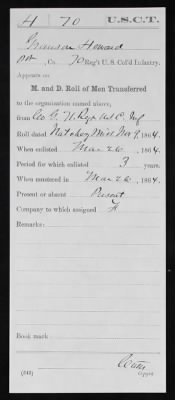 4 | 70 | U.S.C.T.
Howard
Pvt, Co. , 70 Reg't U. S. Col'd Infantry.
Appears on
M. and D. Roll of Men Transferred
to the organization named above,
from Co G, U.S. Inf
Roll dated Natchez Miss Nov 9, 1864.
When enlisted Mar 26, 1864.
Period for which enlisted 3 years.
When mustered in Mar 26, 1864.
Present or absent Present
Company to which assigned F
Remarks:
Book mark:
(642)
Copyist